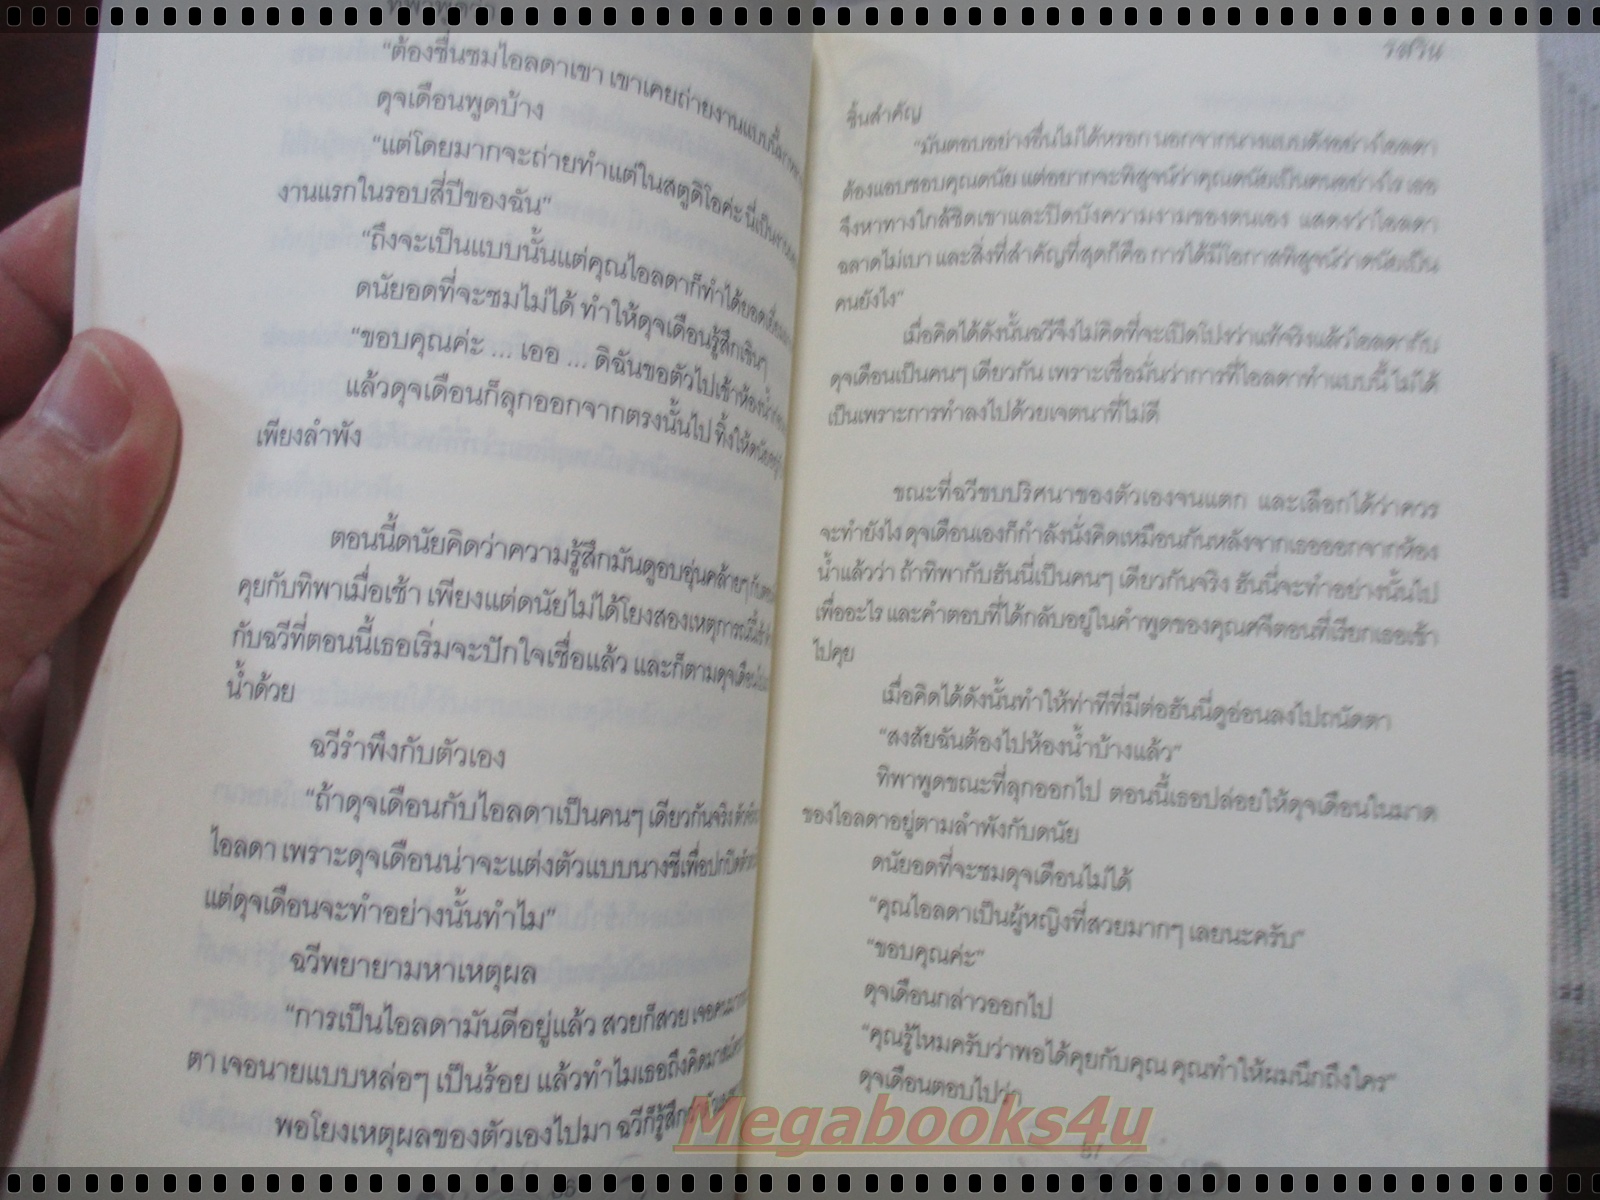 ทิพาพูดว่า
“ต้องชื่นชมไอลดาเขา เขาเคยถ่ายงานแบบนี้มา
ดุจเดือนพูดบ้าง
“แต่โดยมากจะถ่ายทำแต่ในสตูดิโอค่ะ นี่เป็น
งานแรกในรอบสี่ปีของฉัน”
“ถึงจะเป็นแบบนั้นแต่คุณไอลดาก็ทำได้ยอดเยี่ยม
ดนัยอดที่จะชมไม่ได้ ทำให้ดุจเดือนรู้สึกเขินๆ
“ขอบคุณค่ะ ... เออ ... ดิฉันขอตัวไปเข้าห้องน้ำ
แล้วดุจเดือนก็ลุกออกจากตรงนั้นไป ทิ้งให้ดนัยอยู่
เพียงลำพัง
ตอนนี้ดนัยคิดว่าความรู้สึกมันดูอบอุ่นคล้ายๆ กับ
คุยกับทิพาเมื่อเช้า เพียงแต่ดนัยไม่ได้โยงสองเหตุการณ์นี้เข้า
กับฉวีที่ตอนนี้เธอเริ่มจะปักใจเชื่อแล้ว และก็ตามดุจเดือน
น้ำด้วย
ฉวีรำพึงกับตัวเอง
“ถ้าดุจเดือนกับไอลดาเป็นคนๆ เดียวกันจริง
ไอลดา เพราะดุจเดือนน่าจะแต่งตัวแบบนางชีเพื่อปกปิด
แต่ดุจเดือนจะทำอย่างนั้นทำไม”
ฉวีพยายามหาเหตุผล
“การเป็นไอลดามันดีอยู่แล้ว สวยก็สวย เจอคนมา
ตา เจอนายแบบหล่อๆ เป็นร้อย แล้วทำไมเธอถึงคิด
พอโยงเหตุผลของตัวเองไปมา ฉวีก็รู้สึก
66
รสริน
ชิ้นสำคัญ
“มันตอบอย่างอื่นไม่ได้หรอก นอกจากนางแบบดังอย่างไอลดา
ต้องแอบชอบคุณดนัย แต่อยากจะพิสูจน์ว่าคุณดนัยเป็นคนอย่างไร เธอ
จึงหาทางใกล้ชิดเขาและปิดบังความงามของตนเอง แสดงว่าไอลดา
ฉลาดไม่เบา และสิ่งที่สำคัญที่สุดก็คือ การได้มีโอกาสพิสูจน์ว่าดนัยเป็น
คนยังไง”
เมื่อคิดได้ดังนั้นฉวีจึงไม่คิดที่จะเปิดโปงว่าแท้จริงแล้วไอลดากับ
ดุจเดือนเป็นคนๆ เดียวกัน เพราะเชื่อมั่นว่าการที่ไอลดาทำแบบนี้ ไม่ได้
เป็นเพราะการทำลงไปด้วยเจตนาที่ไม่ดี
ขณะที่ฉวีขบปริศนาของตัวเองจนแตก และเลือกได้ว่าควร
จะทำยังไง ดุจเดือนเองก็กำลังนั่งคิดเหมือนกันหลังจากเธอออกจากห้อง
น้ำแล้วว่า ถ้าทิพากับฮันนี่เป็นคนๆ เดียวกันจริง ฮันนี่จะทำอย่างนั้นไป
เพื่ออะไร และคำตอบที่ได้กลับอยู่ในคำพูดของคุณศจีตอนที่เรียกเธอเข้า
ไปคุย
เมื่อคิดได้ดังนั้นทำให้ท่าทีที่มีต่อฮันนี่ดูอ่อนลงไปถนัดตา
“สงสัยฉันต้องไปห้องน้ำบ้างแล้ว”
ทิพาพูดขณะที่ลุกออกไป ตอนนี้เธอปล่อยให้ดุจเดือนในมาด
ของไอลดาอยู่ตามลำพังกับดนัย
ดนัยอดที่จะชมดุจเดือนไม่ได้
“คุณไอลดาเป็นผู้หญิงที่สวยมากๆ เลยนะครับ”
“ขอบคุณค่ะ”
ดุจเดือนกล่าวออกไป
“คุณรู้ไหมครับว่าพอได้คุยกับคุณ คุณทำให้ผมนึกถึงใคร”
ดุจเดือนตอบไปว่า
67
Megabooks4u